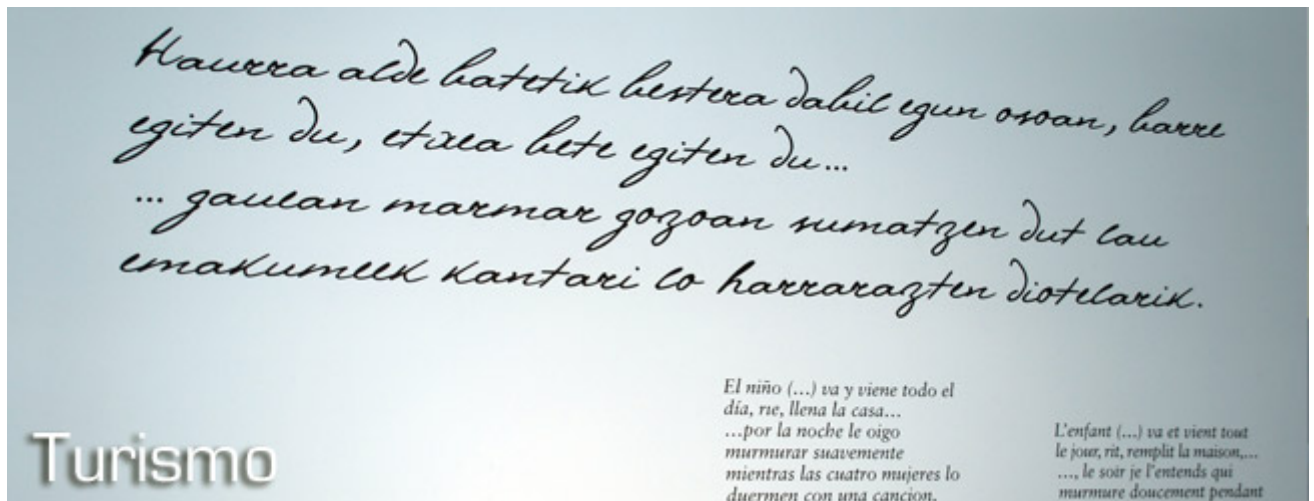 Haurra alde batetik bestera dabil egun osoan, barre
egiten du, etxea bete egiten du...
... gauean marmar gozoan sumatzen dut lau
emakumeek kantari lo harrarazten diotelarik.
El niño (...) va y viene todo el
día, rie, llena la casa...
...por la noche le oigo
murmurar suavemente
mientras las cuatro mujeres lo
duermen con una cancion.
L'enfant (...) va et vient tout
le jour, rit, remplit la maison,...
..., le soir je l'entends qui
murmure doucement pendant
Turismo